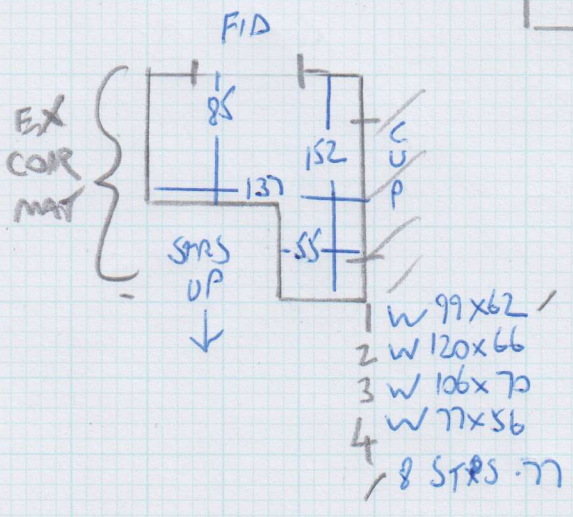 F/D
EX
COIR
MAT
85
152
137
CUP
55
STRS
UP
1 W 99x62
2 W 120x66
3 W 106x70
4 W 77x56
8 STRS .77